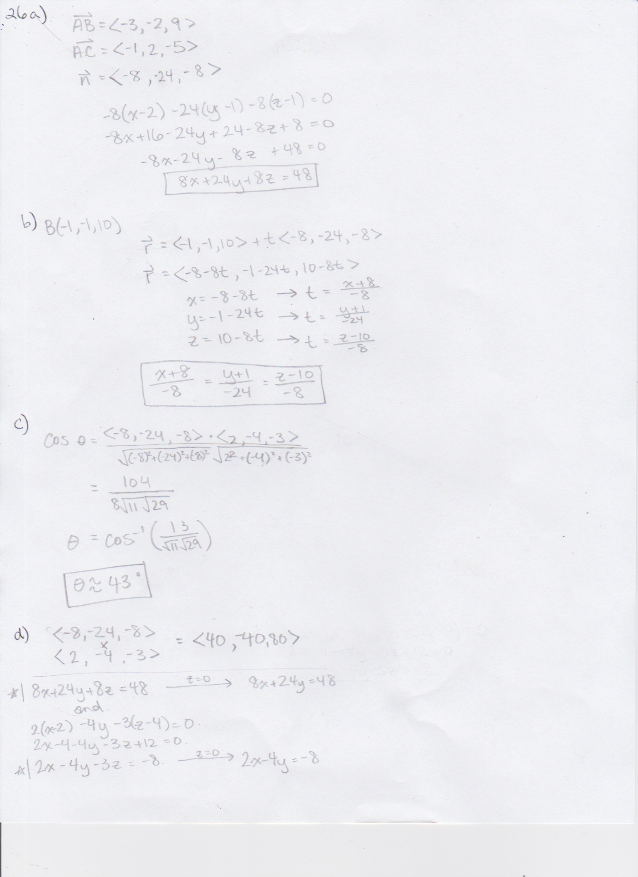 26a) AB = <-3, -2, 9>
AC = <-1, 2, -5>
n = <-8, -24, -8>
-8(x-2) -24(y-1) -8(z-1) = 0
-8x+16-24y+24-8z+8=0
-8x-24y-8z +48=0
8x+24y+8z=48
b) B(-1,-1,10)
r = <-1,-1,10> + t<-8,-24,-8>
r = <-8-8t, -1-24t, 10-8t>
x = -8-8t → t = x+8/-8
y = -1-24t → t = y+1/-24
z = 10-8t → t = z-10/-8
x+8/-8 = y+1/-24 = z-10/-8
c) cos θ = <-8,-24,-8> · <2,-4,-3> / √(-8)²+(-24)²+(-8)² √2²+(-4)²+(-3)²
= 104 / 8√11√29
θ = cos⁻¹(13/√11√29)
θ ≈ 43°
d) <-8,-24,-8> × <2,-4,-3> = <40,-40,80>
*| 8x+24y+8z=48 z=0→ 8x+24y=48
and
2(x-2) -4y -3(z-4)=0.
2x-4-4y-3z+12=0.
*| 2x-4y-3z=-8 z=0→ 2x-4y=-8